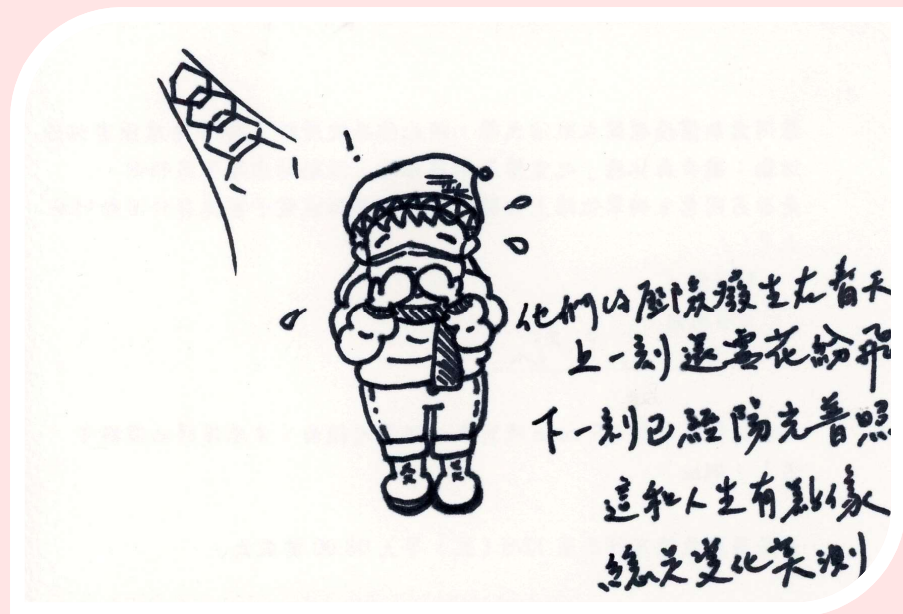 他們的歷險發生在春天
上一刻還雪花紛飛
下一刻已經陽光普照
這和人生有點像
總是變化莫測